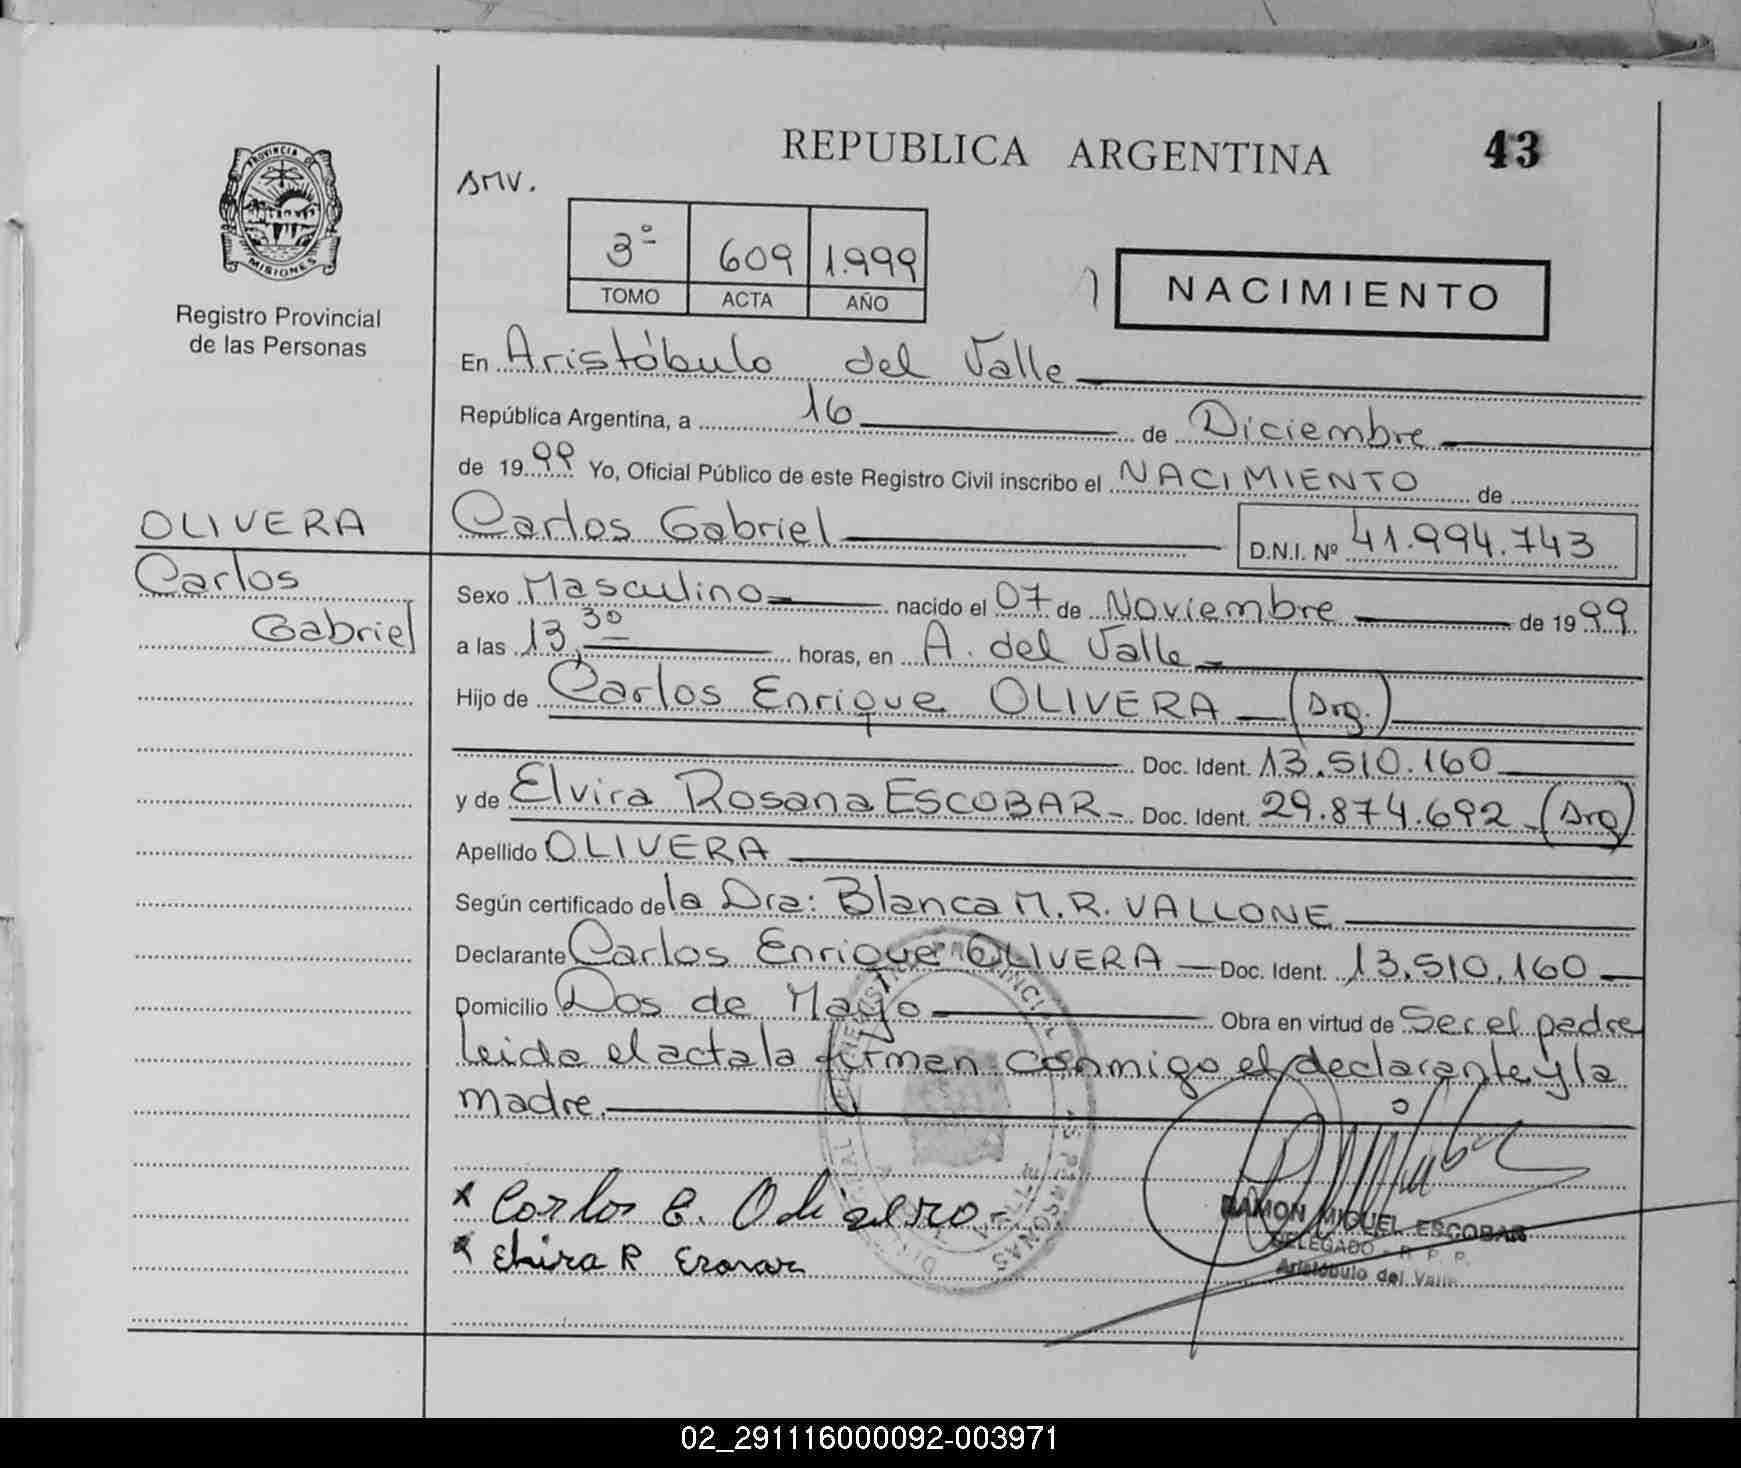 REPUBLICA ARGENTINA
43
PROVINCIA DE
MISIONES
Registro Provincial
de las Personas
AMV.
3º 609 1.999
TOMO ACTA AÑO
NACIMIENTO
En Aristóbulo del Valle
República Argentina, a 16 de Diciembre
de 1999 Yo, Oficial Público de este Registro Civil inscribo el NACIMIENTO de
OLIVERA
Carlos
Gabriel
Carlos Gabriel D.N.I. Nº 41.994.743
Sexo Masculino nacido el 07 de Noviembre de 1999
a las 13,30 horas, en A. del Valle
Hijo de Carlos Enrique OLIVERA (Arg.)
Doc. Ident. 13.510.160
y de Elvira Rosana ESCOBAR Doc. Ident. 29.874.692 (Arg)
Apellido OLIVERA
Según certificado de la Dra: Blanca M. R. VALLONE
Declarante Carlos Enrique OLIVERA Doc. Ident. 13.510.160
Domicilio Dos de Mayo Obra en virtud de Ser el padre
leida el acta la firman conmigo el declarante y la
madre.
x Carlos E.
x Elvira R
RAMON MIGUEL ESCOBAR
DELEGADO - R. P. P.
Aristóbulo del Valle
02_291116000092-003971